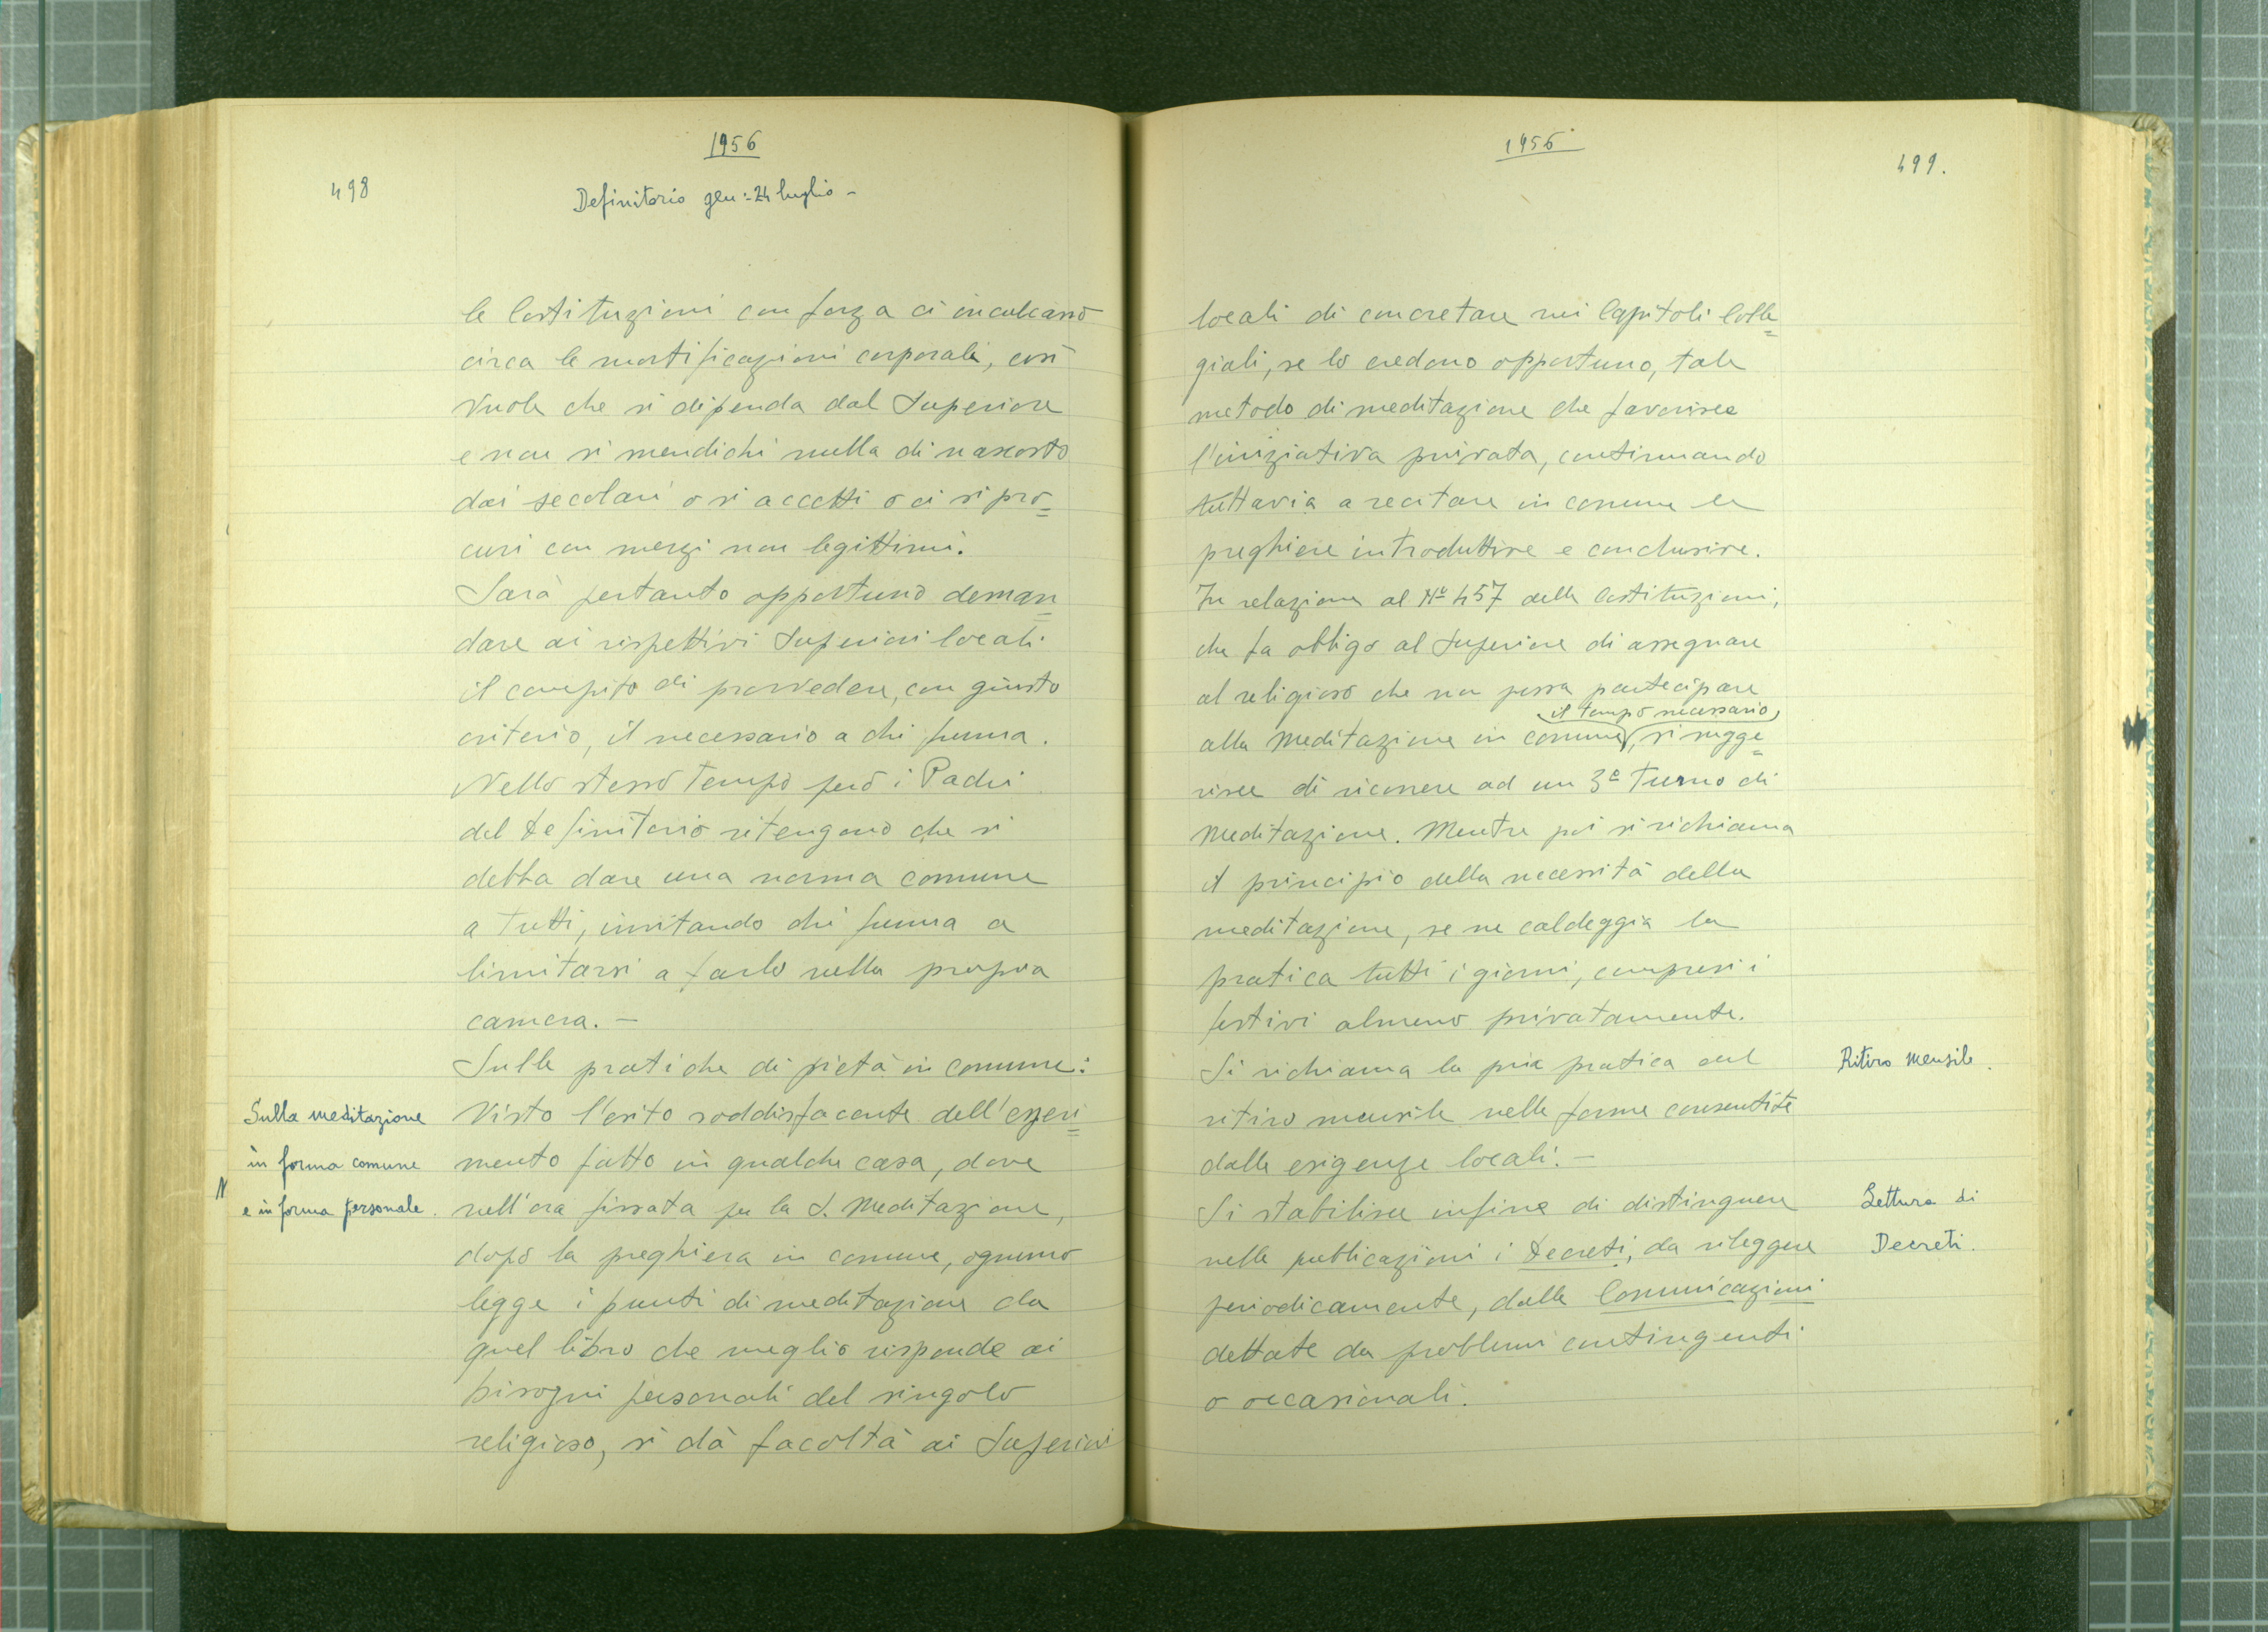 1956
498
Definitorio gen: 24 luglio -
le Costituzioni con forza ci inculcano
circa le mortificazioni corporali, così
vuole che si dipenda dal Superiore
e non si mendichi nulla di nascosto
dai secolari o si accetti o ci si pro=
curi con mezzi non legittimi.
Sarà pertanto opportuno deman=
dare ai rispettivi Superiori locali
il compito di provvedere, con giusto
criterio, il necessario a chi fuma.
Nello stesso tempo però i Padri
del Definitorio ritengono che si
debba dare una norma comune
a tutti, invitando chi fuma a
limitarsi a farlo nella propria
camera. -
Sulle pratiche di pietà in comune:
Sulla meditazione
in forma comune
e in forma personale.
Visto l'esito soddisfacente dell'esperi=
mento fatto in qualche casa, dove
nell'ora fissata per la S. Meditazione,
dopo la preghiera in comune, ognuno
legge i punti di meditazione da
quel libro che meglio risponde ai
bisogni personali del singolo
religioso, si dà facoltà ai Superiori
1956
499.
locali di concretare nei Capitoli Colle=
giali, se lo credono opportuno, tale
metodo di meditazione che favorisce
l'iniziativa privata, continuando
tuttavia a recitare in comune le
preghiere introduttive e conclusive.
In relazione al Nº 457 delle Costituzioni,
che fa obbligo al Superiore di assegnare
al religioso che non possa partecipare
il tempo necessario
alla meditazione in comune, si sugge=
risce di ricorrere ad un 3º turno di
meditazione. Mentre poi si richiama
il principio della necessità della
meditazione, se ne caldeggia la
pratica tutti i giorni, compresi i
festivi almeno privatamente.
Si richiama la pia pratica del
Ritiro mensile.
ritiro mensile nelle forme consentite
dalle esigenze locali. -
Si stabilisce infine di distinguere
Lettura di
Decreti.
nelle pubblicazioni i Decreti, da rileggere
periodicamente, dalle Comunicazioni
dettate da problemi contingenti
o occasionali.